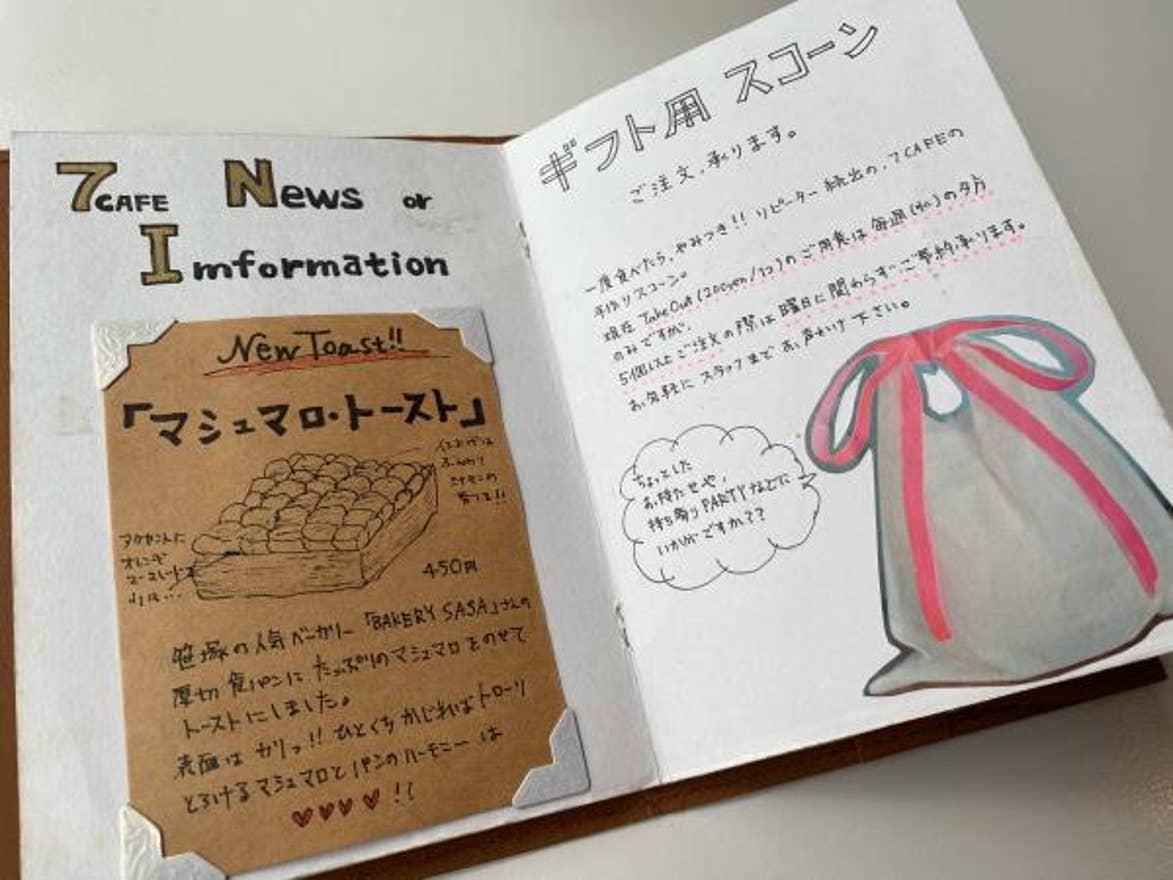 7CAFE News or
Imformation
New Toast!!
「マシュマロ・トースト」
シナモンの
香りも!!
アクセントに
オレンジ
マーマレードを
450円
笹塚の人気ベーカリー「BAKERY SASA」さんの
厚切食パンにたっぷりのマシュマロをのせて
トーストにしました。
表面はカリっ!!ひとくちかじればトローリ
とろけるマシュマロとパンのハーモニーは
♥♥♥♥!!
ギフト用 スコーン
ご注文、承ります。
一度食べたら、やみつき!!リピーター続出の、7CAFEの
手作りスコーン。
現在 Take Out (200yen/1コ)のご用意は毎週(水)の夕方
のみですが、
5個以上ご注文の際は曜日に関わらずご予約承ります。
お気軽にスタッフまでお声かけ下さい。
ちょっとした
お持たせや、
持ち寄りPARTYなどに
いかがですか??